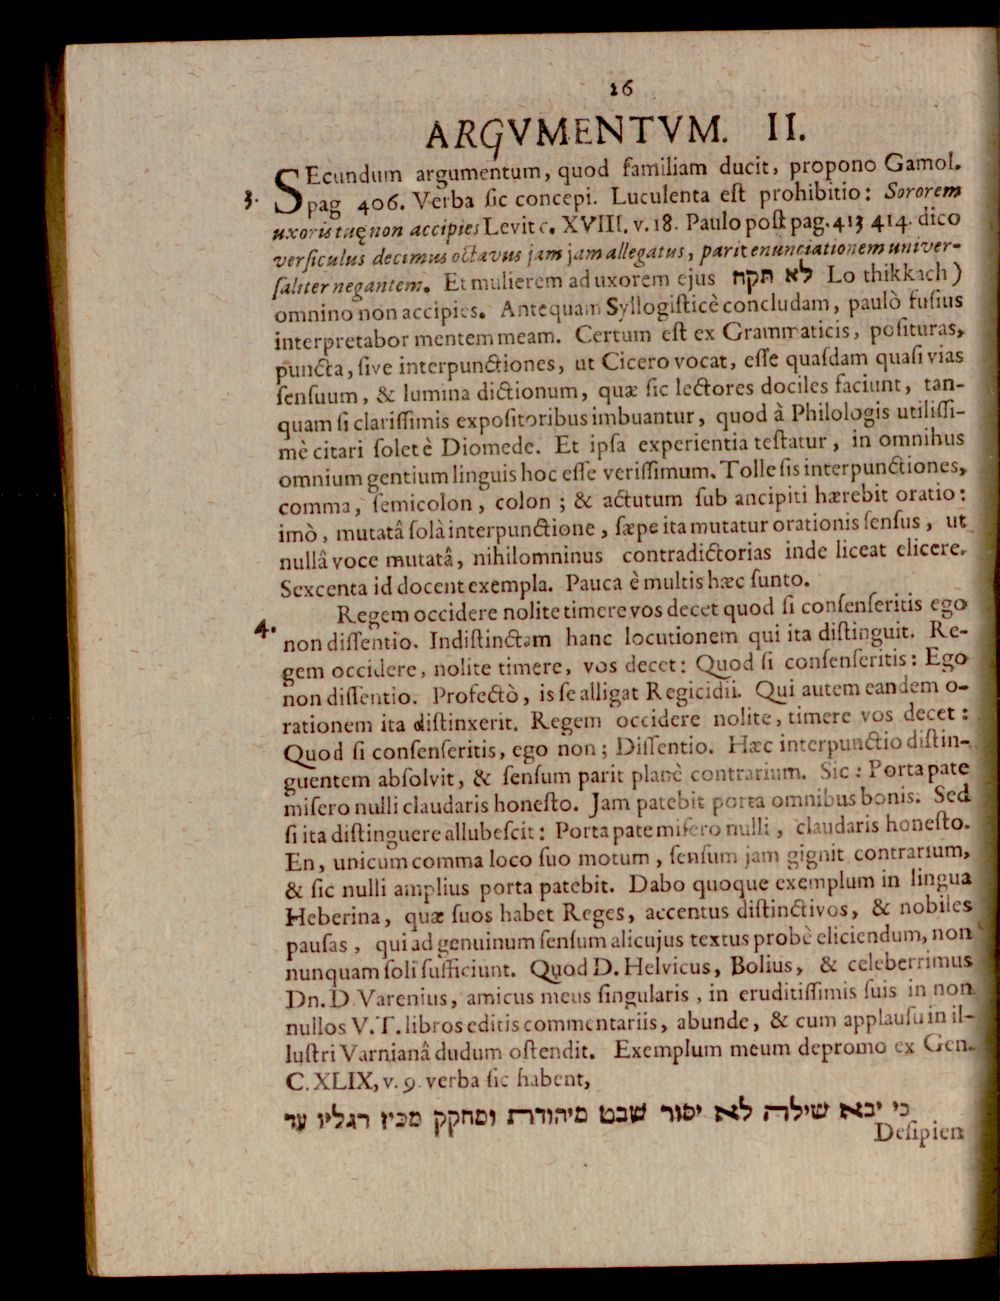 16
ARGVMENTVM. II.
3. SEcundum argumentum, quod familiam ducit, propono Gamol.
pag 406. Verba ſic concepi. Luculenta eſt prohibitio: Sororem
uxoris tuę non accipies Levit c. XVIII. v. 18. Paulo poſt pag. 413 414. dico
verſiculus decimus octavus jam jam allegatus, parit enunciationem univer-
ſaliter negantem. Et mulierem ad uxorem ejus לא תקח Lo thikkach)
omnino non accipies. Antequam Syllogiſticè concludam, paulò fuſius
interpretabor mentem meam. Certum eſt ex Grammaticis, poſituras,
puncta, ſive interpunctiones, ut Cicero vocat, eſſe quaſdam quaſi vias
ſenſuum, & lumina dictionum, quæ ſic lectores dociles faciunt, tan-
quam ſi clariſſimis expoſitoribus imbuantur, quod à Philologis utiliſſi-
mè citari ſolet è Diomede. Et ipſa experientia teſtatur, in omnibus
omnium gentium linguis hoc eſſe veriſſimum. Tolle ſis interpunctiones,
comma, ſemicolon, colon; & actutum ſub ancipiti hærebit oratio:
imò, mutatâ ſolà interpunctione, ſæpe ita mutatur orationis ſenſus, ut
nullâ voce mutatâ, nihilominus contradictorias inde liceat elicere.
Sexcenta id docent exempla. Pauca è multis hæc ſunto.
4. Regem occidere nolite timere vos decet quod ſi conſenſeritis ego
non diſſentio. Indiſtinctam hanc locutionem qui ita diſtinguit. Re-
gem occidere, nolite timere, vos decet: Quod ſi conſenſeritis: Ego
non diſſentio. Profectò, is ſe alligat Regicidii. Qui autem eandem o-
rationem ita diſtinxerit. Regem occidere nolite, timere vos decet:
Quod ſi conſenſeritis, ego non; Diſſentio. Hæc interpunctio diſtin-
guentem abſolvit, & ſenſum parit planè contrarium. Sic: Porta pate
miſero nulli claudaris honeſto. Jam patebit porta omnibus bonis. Sed
ſi ita diſtinguere allubeſcit: Porta pate miſero nulli, claudaris honeſto.
En, unicum comma loco ſuo motum, ſenſum jam gignit contrarium,
& ſic nulli amplius porta patebit. Dabo quoque exemplum in lingua
Heberina, quæ ſuos habet Reges, accentus diſtinctivos, & nobiles
pauſas, qui ad genuinum ſenſum alicujus textus probè eliciendum, non
nunquam ſoli ſufficiunt. Quod D. Helvicus, Bolius, & celeberrimus
Dn. D. Varenius, amicus meus ſingularis, in eruditiſſimis ſuis in non
nullos V. T. libros editis commentariis, abunde, & cum applauſu in il-
luſtri Varnianâ dudum oſtendit. Exemplum meum depromo ex Gen.
C. XLIX, v. 9. verba ſic habent,
כי יבא שילה לא יסור שבט מיהודה ומחקק מבין רגליו עד
Deſipien